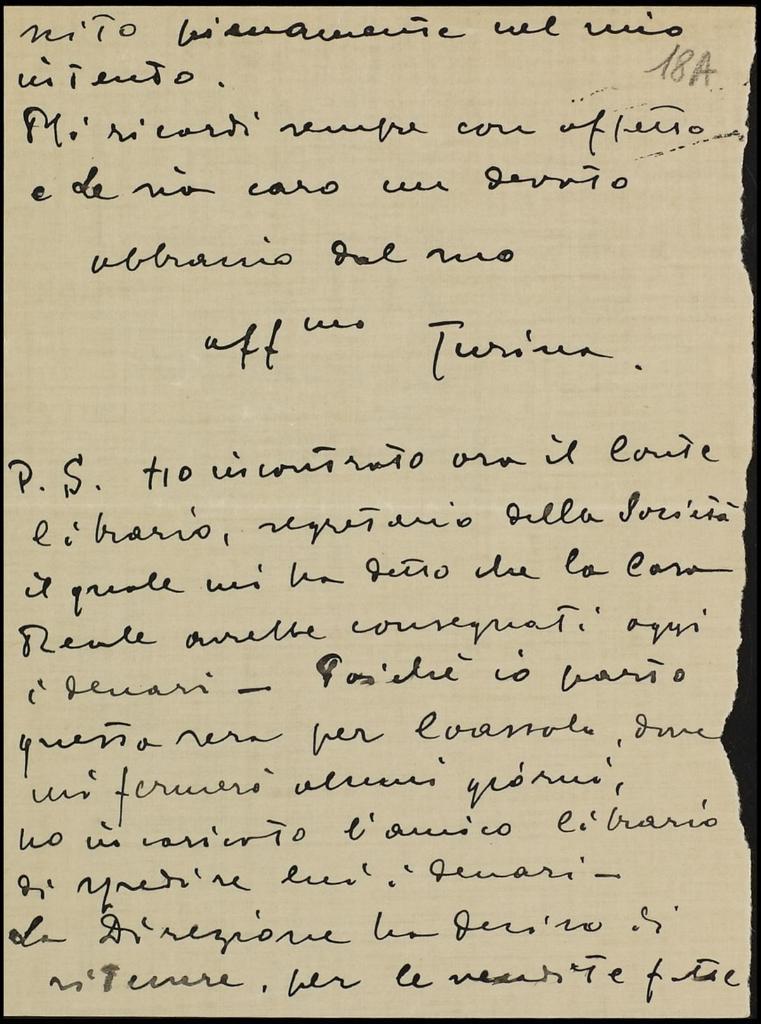 nito pienamente nel mio
intento.
18A
Mi ricordi sempre con affetto
e Le sia caro un devoto
abbraccio dal suo
aff mo Turina.
P. S. Ho incontrato ora il Conte
librario, segretario della Società
il quale mi ha detto che la Casa
Reale avrebbe consegnati oggi
i denari — Poichè io parto
questa sera per Coassolo, dove
mi fermerò alcuni giorni,
ho incaricato l'amico librario
di spedire lui i denari —
La Direzione ha deciso di
ritenere, per le vendite fatte